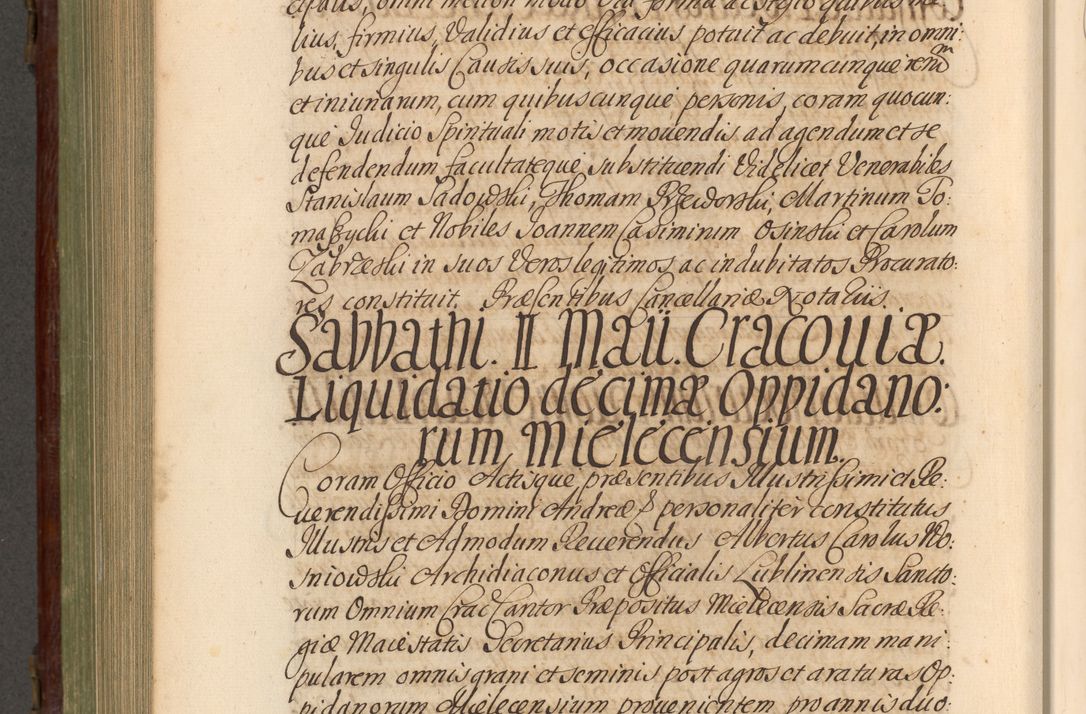 cipalis, omni meliori modo via forma ac stylo quibus me
lius, firmius, validius et efficacius potuit ac debuit, in omni:
bus et singulis Causis suis, occasione quarumcunque rerum
et iniuriarum, cum quibuscunque personis, coram quocun:
que Judicio Spirituali motis et movendis, ad agendum et se
defendendum facultateque substituendi Videlicet Venerabiles
Stanislaum Sadowski, Thomam Przewdorski, Martinum To:
maszycki et Nobiles Joannem Casimirum Osinski et Carolum
Zabrzeski in suos Veros legitimos ac indubitatos Procurato:
res constituit. Præsentibus Cancellariæ Notariis.
Sabbathi. II Maii. Cracouiæ.
Liquidatio decimæ Oppidano:
rum Mielecensium.
Coram Officio Actisque præsentibus Illustrissimi et Re:
uerendissimi Domini Andreæ &c personaliter constitutus
Illustris et Admodum Reuerendus Albertus Carolus Wo:
sniowski Archidiaconus et Officialis Lublinensis Sancto:
rum Omnium Crac Cantor Præpositus Mielecensis Sacræ Re:
giæ Maiestatis Secretarius Principalis, decimam mani:
pularem omnis grani et seminis post agros et araturas Op:
pidanorum Mielecensium provenientem pro annis duo: